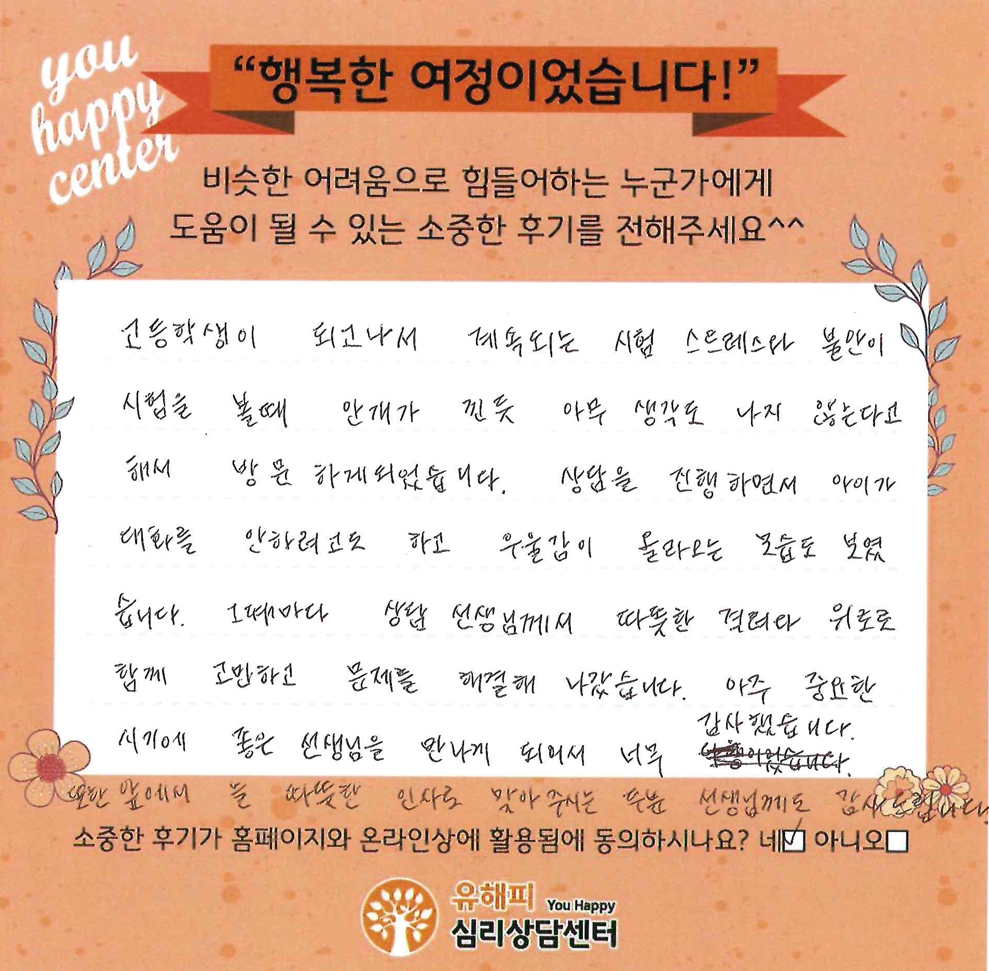 you
happy
center
“행복한 여정이었습니다!”
비슷한 어려움으로 힘들어하는 누군가에게
도움이 될 수 있는 소중한 후기를 전해주세요^^
고등학생이 되고나서 계속되는 시험 스트레스와 불안이
시험을 볼때 안개가 낀듯 아무 생각도 나지 않는다고
해서 방문하게되었습니다. 상담을 진행하면서 아이가
대화를 안하려고도 하고 우울감이 올라오는 모습도 보였
습니다. 그때마다 상담 선생님께서 따뜻한 격려와 위로로
함께 고민하고 문제를 해결해 나갔습니다. 아주 중요한
시기에 좋은 선생님을 만나게 되어서 너무 감사했습니다.
또한 앞에서 늘 따뜻한 인사로 맞아주시는 선생님께도 감사드립니다
소중한 후기가 홈페이지와 온라인상에 활용됨에 동의하시나요? 네☑ 아니오☐
유해피 You Happy
심리상담센터